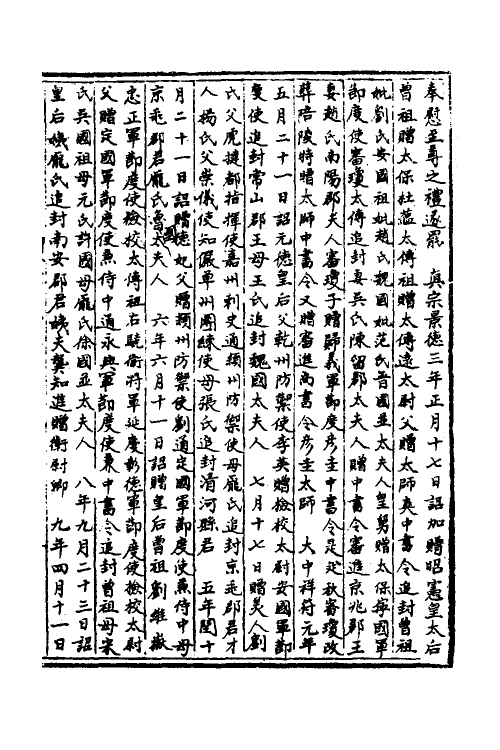 奉慰至尊之禮遂罷　真宗景德三年正月十七日詔加贈昭憲皇太后
曾祖贈太保杜藴太傅祖贈太傅遠太尉父贈太師爽中書令追封曾祖
妣劉氏安國祖妣趙氏魏國妣范氏晉國並太夫人皇舅贈太保寧國軍
節度使審瓊太傅追封妻吳氏陳留郡太夫人贈中書令審進京兆郡王
妻趙氏南陽郡夫人審瓊子贈歸義軍節度彥圭中書令是秋審瓊改
葬陪陵特贈太師中書令又贈審進尚書令彥圭太師　大中祥符元年
五月二十一日詔元德皇后父乾州防禦使李英贈檢校太尉安國軍節
度使追封常山郡王母王氏追封魏國太夫人　七月十七日贈美人劉
氏父虎捷都指揮使嘉州刺史通潁州防禦使母龐氏追封京兆郡君才
人楊氏父崇儀使知儼單州團練使母張氏追封清河縣君　五年閏十
月二十一日詔贈德妃父贈潁州防禦使劉通定國軍節度使兼侍中母
京兆郡君龐氏魯國太夫人　六年六月十一日詔贈皇后曾祖劉維嶽
忠正軍節度使檢校太傅祖右驍衛將軍延慶彰德軍節度使檢校太尉
父贈定國軍節度使兼侍中通永興軍節度使兼中書令追封曾祖母宋
氏吳國祖母元氏許國母龐氏徐國並太夫人　八年九月二十三日詔
皇后姨龐氏追封南安郡君姨夫龔知進贈衛尉卿　九年四月十一日